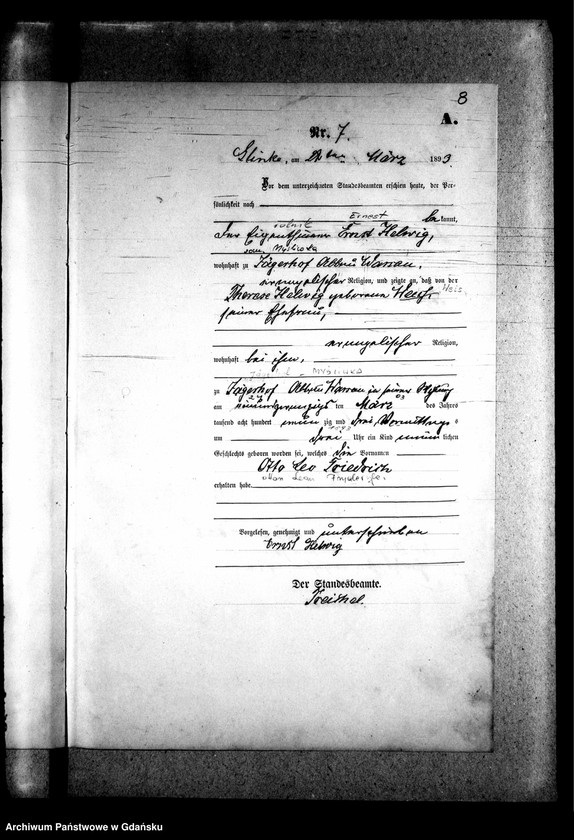 8
A.
Nr. 7.
Glinke, am ten März 1893
Vor dem unterzeichneten Standesbeamten erschien heute, der Per-
sönlichkeit nach
Ernest bekannt,
rolnik
der Eigenthümer Ernst Helwig,
zam. Myśliwska
wohnhaft zu Jägerhof Abbau
evangelischer Religion, und zeigte an, daß von der
Therese Helwig geborene
seiner Ehefrau,
evangelischer Religion,
wohnhaft bei ihm,
zu Jägerhof Abbau in seiner Wohnung
am ten März des Jahres
tausend acht hundert neunzig und drei, Vormittags
um drei Uhr ein Kind männlichen
Geschlechts geboren worden sei, welches die Vornamen
Otto Leo Friedrich
erhalten habe.
Vorgelesen, genehmigt und unterschrieben
Ernst Helwig
Der Standesbeamte.
Archiwum Państwowe w Gdańsku